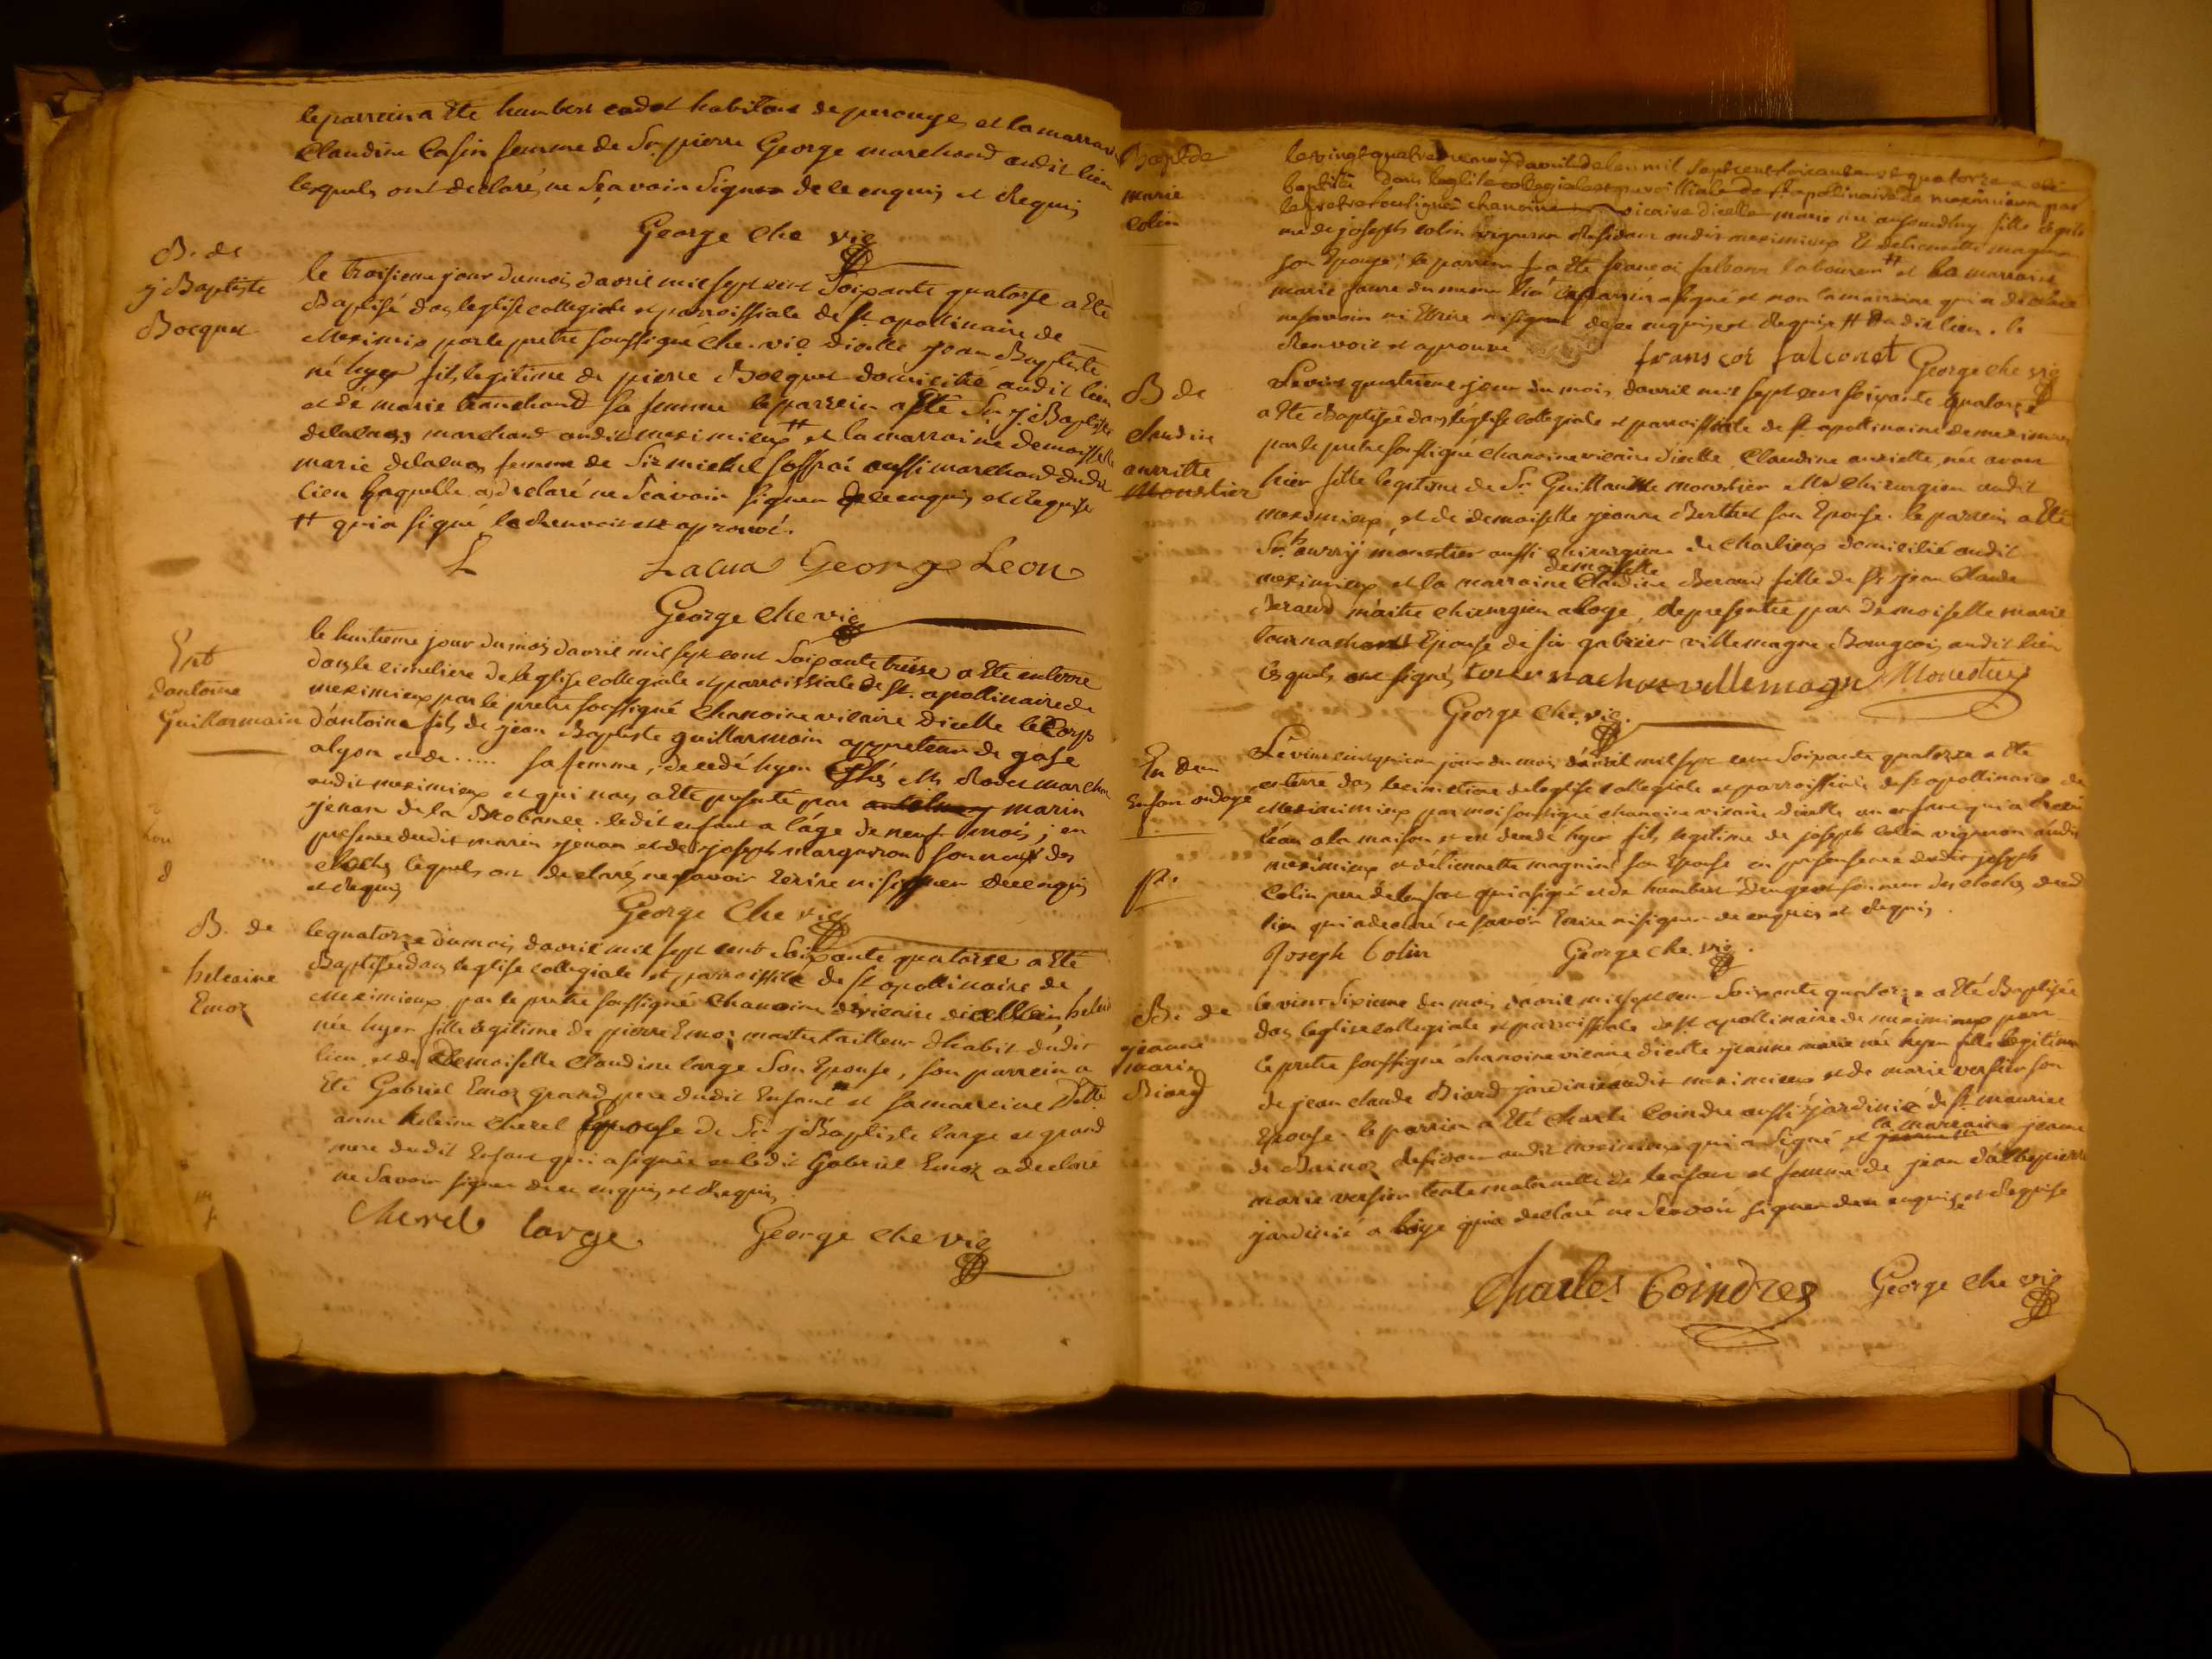 le parrein a Ete humbert cadet habitant de perouge, et la marraine
Claudine Casin femme de Sr. pierre George marchand audit lieu
lesquels ont declaré ne Sçavoir Signer de ce enquis et Requis
George che vic
B. de
j Baptiste
Bocquet
le troisieme jour du mois d'avril mil sept cent Soixante quatorse a Ete
Baptisé dans leglise collegiale et parroissiale de St. apollinaire de
Meximie par le pretre soussigné che. vic. dicelle jean Baptiste
né hyer fils legitime de pierre Bocquet domicilié audit lieu
et de marie tranchand sa femme le parrein a Eté Sr. j. Baptiste
delacua marchand audit meximieux # et la marraine demoiselle
marie delacua femme de Sir michel aussi marchand dudit
lieu Laquelle a declaré ne Sçavoir signer de ce enquis et Requise
# qui a signé le Renvoit est aprouvé.
L Lacua George Leon
George che vic
Ent
dantoine
Guillarmain
le huitieme jour du mois d'avril mil sept cent Soixante treise a Ete enterré
dans le cimetiere de leglise collegiale et parroissiale de St. apollinaire de
meximieux par le pretre soussigné chanoine vicaire dicelle le Corps
d'antoine fils de jean Baptiste guillarmain appreteur de gase
a lyon et de ..... sa femme, decedé hyer Chés marchand
audit meximieux et qui nous a Ete presenté par marin
jenan de la . ledit enfant a l'âge de neuf mois; en
presence dudit marin jenan et de joseph marguiron sonneur des
cloches lequels ont declaré ne savoir Ecrire ni signer de ce enquis
et Requis
George che vic
B. de
heleine
Emoz
le quatorze du mois d'avril mil sept cent Soixante quatorze a Eté
Baptisée dans leglise collegiale et parroissiale de St apollinaire de
Meximieux par le pretre soussigné chanoine vicaire dicelle
née hyer fille legitime de pierre Emoz maitre tailleur d'habit dudit
lieu et de Demoiselle Claudine large Son Epouse, son parrein a
Eté Gabriel Emoz grand pere dudit Enfant et sa marreine Dlle
anne heleine cherel Epouse de Sr j Baptiste large et grand
mere dudit Enfant qui a signée et ledit Gabriel Emoz a declaré
ne Savoir signer de ce enquis et Requis
cherel large. George che vic
Bapt de
marie
colin
le vingt quatre du mois d'avril de lan mil sept cent soixante et quatorze a été
baptisée dans leglise collegiale et parroissiale de St. apollinaire de meximieux par
le pretre soussigné chanoine vicaire dicelle marie née aujourdhuy fille legiti
me de joseph colin vigneron Residant audit meximieux Et detiennette magnin
son Epouse; le parrein a Ete françoi falconet laboureur # et La marraine
marie faure du meme lieu le parrein a signé et non la marraine qui a declaré
ne savoir ni Ecrire ni signer de ce enquise et Requise # dudit lieu. le
Renvoit et aprouvé
fransçoi falconet George che vic
B de
claudine
anriette
Monestier
Le vint quatrieme jour du mois d'avril mil sept cent soixante quatorze
a Ete Baptisée dans leglise collegiale et parroissiale de St apollinaire de meximieux
par le pretre soussigné chanoine vicaire dicelle Claudine anriette, née avant
hier fille legitime de Sr. Guillaume monestier Me chirurgien audit
meximieux, et de demoiselle jeanne Berthet son Epouse. le parrein a Eté
Sr. monestier aussi chirurgien de Charlieux domicilié audit
meximieux et la marraine demoiselle Claudine Beraud fille de Sr jean Claude
Beraud maitre chirurgien a loye, Representée par Demoiselle marie
tournachon Epouse de Sir gabriel villemagne Bourgeois audit lieu
lesquels ont signés tournachon villemagne Monestier
George che. vic.
En dun
Enfant ondoyé
Le vint cinquieme jour du mois d'avril mil sept cent Soixante quatorze a Ete
enterré dans le cimetiere de leglise collegiale et parroissiale de St apollinaire de
Meximieux par moi soussigné chanoine vicaire dicelle un enfant qui a Recu
leau a la maison et est decedé hyer fils legitime de joseph Colin vigneron audit
meximieux et detiennette magnin son Epouse en presence dudit joseph
Colin pere de lenfant qui a signé et de humbert sonneur des cloches dudit
lieu qui a declaré ne savoir Ecrire ni signer de enquis et Requis.
Joseph Colin George che. vic.
B. de
jeanne
marie
Biard
le vint Sixieme du mois d'avril mil sept cent Soixante quatorze a Eté Baptisée
dans leglise collegiale et parroissiale de St apollinaire de meximieux par
le pretre soussigné chanoine vicaire dicelle jeanne marie née hyer fille legitime
de jean claude Biard jardinié audit meximieux et de marie versier son
Epouse. le parrin a Eté charle Coindre aussi jardinié de St maurice
de Residant audit meximieux qui a Signé et la marraine jeanne
marie tante maternelle de lenfant et femme de jean
jardinié a loye qui a declaré ne Sçavoir signer de ce enquise et Requise
Charles Coindres George che vic